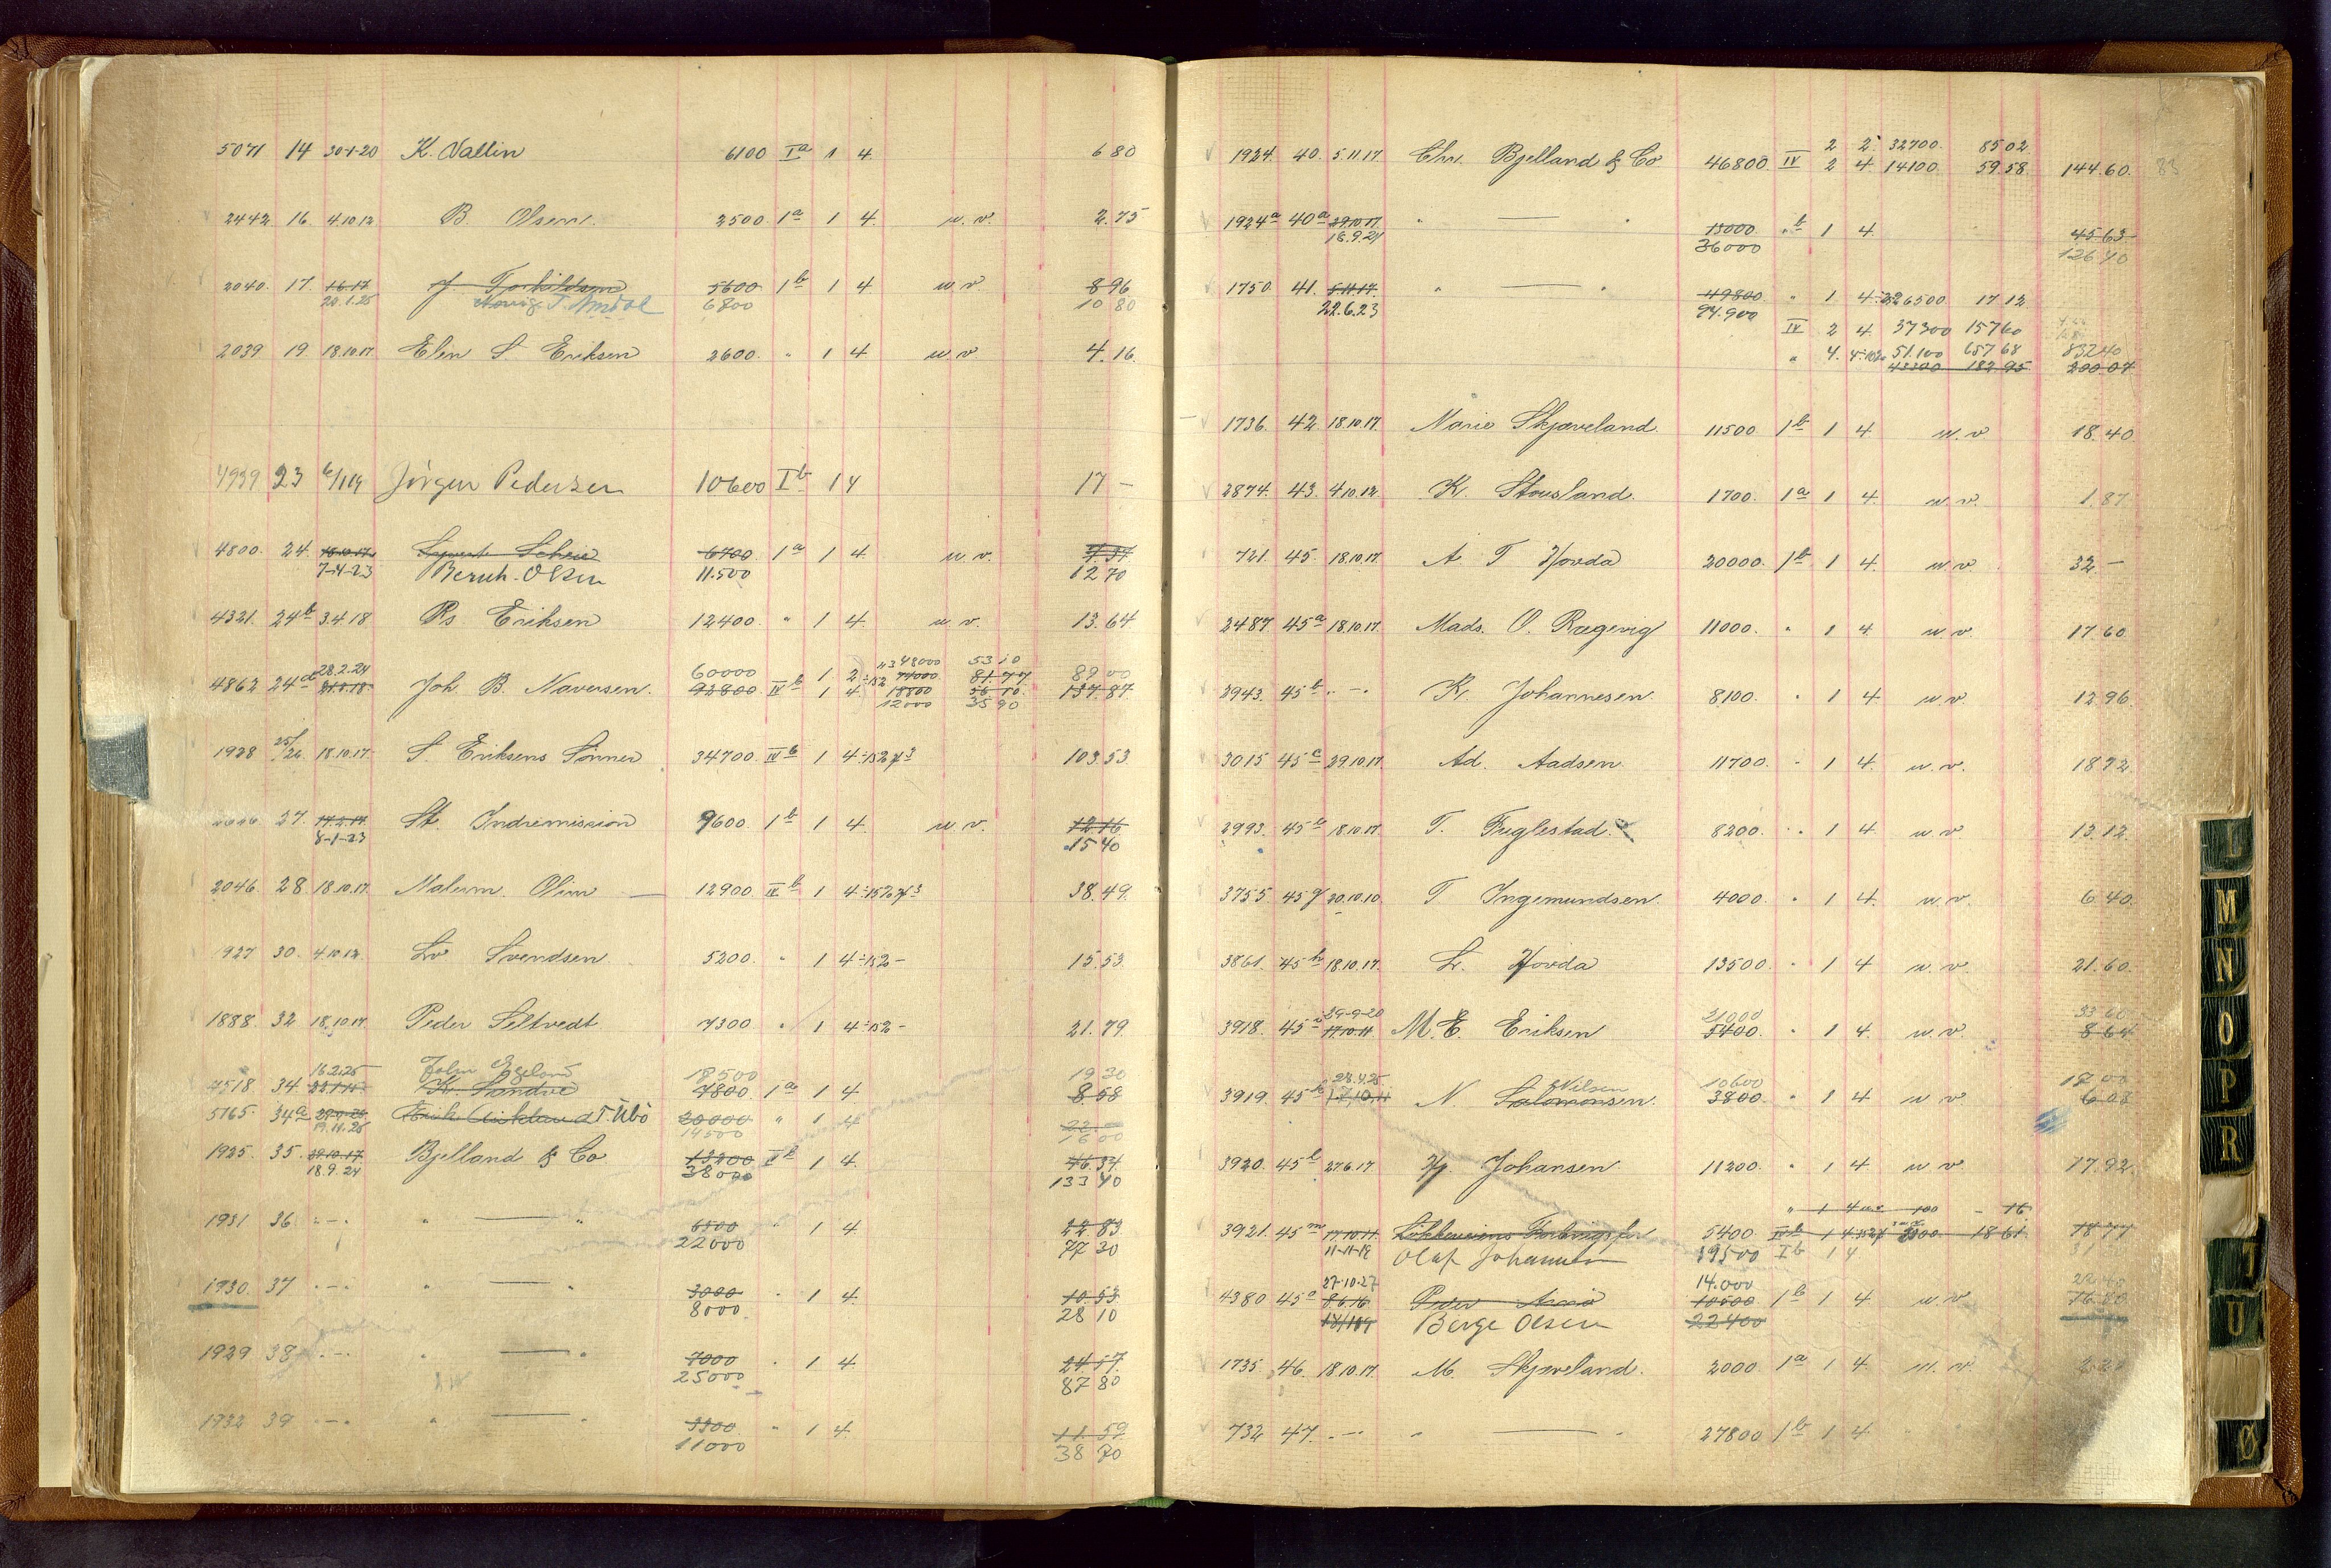 5071 14 30-1-20 K. Vallin 6100 Ia 1 4. 6 80
2442 16. 4.10.12 B. Olsen. 2500 1a 1 4. u. v. 2.75
2040. 17. 1.6.17 J. Torkildsen 5600 1b 1 4. u. v. 8 96
20.1.25 T. Amdal 6800 10 80
2039 19 18.10.17 Elen S Eriksen 2600. " 1 4 u v. 4.16.
4939 23 6/1 19 Jörgen Pedersen 10600 Ib 1 4 17 –
4800. 24. 18.10.17 6700. 1a 1 4. u. v. 7.37
7-4-23 Bernh. Olsen 11.500 12 70
4321. 24b 3.4.18 Rs. Eriksen 12400. " 1 4. u. v. 13.64
28.2.24 60000 1 2 48000 53 10 89 00
4862 24 Joh. B. Naversen. 92800 IVb 1 4. 137.87
12000 35 90
1928 25/26 18.10.17 S. Eriksens Sönner 34700. IVb 1 4 103.53
27. 17.2.17. St. Indremission 9600. 1b 1 4. u v. 12.16
8-1-23 15 40
2046 28 18.10.17. Malum. Olsen 12900. IVb 1 4 38.49.
1927 30. 4.10.12. Lv Svendsen 5200. " 1 4 15.53.
1888. 32 18.10.17 Peder Seltvedt 7300 " 1 4 21.79.
16.2.25 John Egeland 18500 19 30
4518. 34. K. Sandve 7800. 1a 1 4 8.58
5165. 34a T. Ubö 20000 " 1 4 22.–
19.11.25 14500 16 00
1925. 35. 29.10.17. Bjelland & Co 13200 IVb 1 4. 46.34
18.9.24 38000 133 40
1931 36 " — " " — " 6500 " 1 4. 22.83.
22000 77 30
1930. 37 " — " " — " 3000 " 1 4. 10.53.
8000. 28 10
1929 38 " — " " — " 7000 " 1 4. 24.57.
25000 87 80
1932 39 " — " " — " 3300. " 1 4. 11.59
11000 38 70
2 2. 32700. 85 02
1924. 40. 5.11.17. Chr. Bjelland & Co. 46800. IV 2 4. 14100. 59.58. 144.60. 83
1924a 40a 29.10.17 " — " 13000. " b 1 4. 45 63
18.9.24 36000 126 40
1750. 41. 5.11.17. " — " 49800. " 1 4 26500 17 12
22.6.23 94.900
IV 2 4. 37300 157 60
" 4. 51.100 657 68 832 40
43300 182 95 200 07
1736. 42. 18.10.17. Marie Skjæveland. 11500. 1b 1 4 u. v 18.40
2874. 43. 4.10.12. K. Stousland. 1700. 1a 1 4. u. v. 1.87.
721. 45. 18.10.17. A T Hovda 20000. 1b 1 4. u. v. 32. –
2487. 45a 18.10.17. Mads. O. Rægevig 11000. " 1 4. u. v. 17.60.
2943. 45b " — " K. Johannesen. 8100. " 1 4. u. v. 12.96.
3015 45c 29.10.17. Ad. Aadsen. 11700. " 1 4. u. v. 18.72.
2993. 45 18.10.17. T. Fuglestad. 8200. " 1 4. u. v. 13.12.
3755 45g 20.10.10 T Ingemundsen. 4000. " 1 4. u. v. 6.40.
3861. 45h 18.10.17. L. Hovda 13500. " 1 4 u. v. 21.60.
29-9-20 21000 33 60
3918. 45 17.10.11. M. E. Eriksen 5400. " 1 4. u. v. 8.64
23.4.25 Nilsen 10600 17 00
3919. 45k 17.10.11 N Salomonsen. 3800. " 1 4 u v. 6.08
3920. 45l 27.6.17 H. Johansen. 11200. " 1 4 u v. 17.92.
" 1 4 100 – 16
3921. 45m 17.10.11. 5400 IVb 1 18 61 18 77
11-11-18 Olaf Johannesen 19500 Ib 1 4 31
27.10.27 14.000 22 40
4380. 45o 8.6.16 Peder 10500 1b 1 4 u. v. 16.80
Berge Olsen 22400
1735. 46. 18.10.17. M. Skjæveland. 2000. 1a 1 4. u. v. 2.20
732 47. " — " " — " 27800 1b 1 4
I
M
N
O
P
R
T
U
Ø